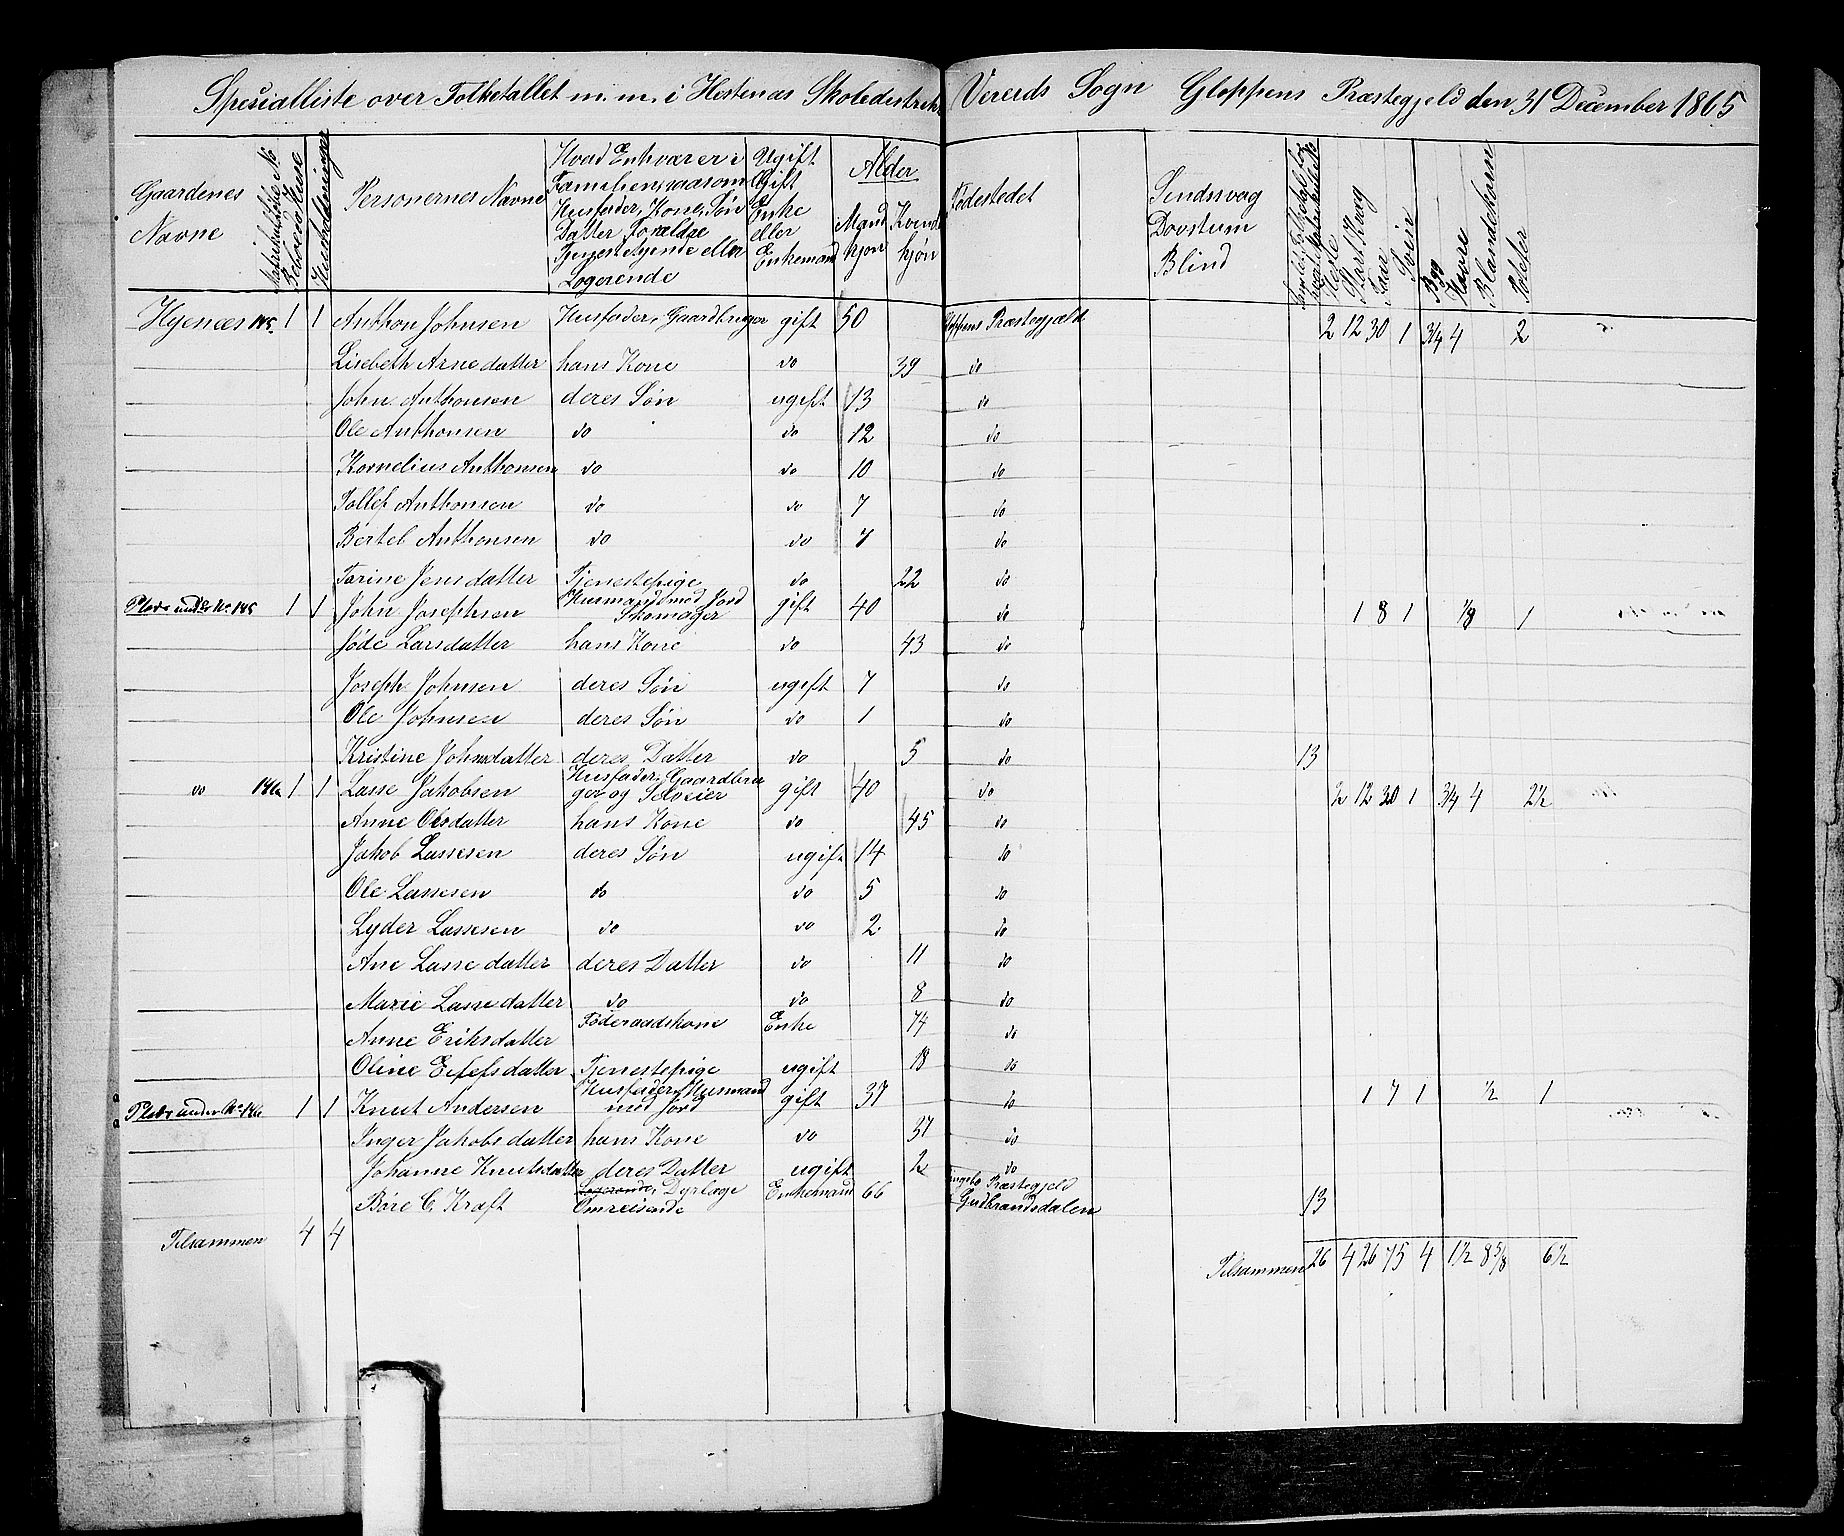 Specialliste over Folketallet m. m. i Hestenæs Skoledestrekt Vereids Sogn Gloppens Præstegjeld den 31 December 1865
Gaardenes Navne
Matrikulskifte No
Beboede Huse
Huusholdninger
Personernes Navne
Hvad Enhver er i
Familien, saasom
Husfader, Kone, Søn
Datter Forældre
Tjenestetyende eller
Logerende
Ugift
Gift
Enke
eller
Enkemand
Alder
Mand kjøn
Kvend kjøn
Fødestedet
Sindssvag
Døvstum
Blind
Heste
Stort Kvæg
Faar
Svin
Byg
Havre
Blandekorn
Poteter
Hyenæs 145. 1 1 Anthon Johnsen Husfader, Gaardbruger gift 50 Gloppens Præstegjæld 2 12 30 1 3/4 4 2
Lisebeth Arnedatter hans Kone do 39 do
John Anthonsen deres Søn ugift 13 do
Ole Anthonsen do do 12 do
Kornelius Anthonsen do do 10 do
Tollef Anthonsen do do 7 do
Bertel Anthonsen do do 7 do
Torine Jensdatter Tjenestepige do 22 do
Plads under No 145 1 1 John Josephsen Husmand med Jord Skomager gift 40 do 1 8 1 1/8 1
Jøde Larsdatter hans Kone do 43 do
Joseph Johnsen deres Søn ugift 7 do
Ole Johnsen deres Søn do 1 do
Kristine Johnsdatter deres Datter do 5 do 13
do 146a 1 1 Lasse Jakobsen Husfader, Gaardbruger og Selveier gift 40 do 2 12 30 1 3/4 4 2½
Anne Olsdatter hans Kone do 45 do
Jakob Lassesen deres Søn ugift 14 do
Ole Lassesen do do 5 do
Lyder Lassesen do do 2 do
Ane Lassedatter deres Datter do 11 do
Marie Lassedatter do do 8 do
Anne Eriksdatter Føderaadskone Enke 74 do
Oline Eilefsdatter Tjenestepige ugift 18 do
Plads under No 146a 1 1 Knut Andersen Husfader, Husmand med Jord gift 37 do 1 7 1 ½ 1
Inger Jakobsdatter hans Kone do 37 do
Johanne Knutsdatter deres Datter ugift 2 do
Børe C. Kraft Logerende, Dyrlæge Omreisende Enkemand 66 Præstegjeld Gudbrandsdalen 13
Tilsammen 4 4 Tilsammen 26 4 26 75 4 1½ 8 5/8 6½